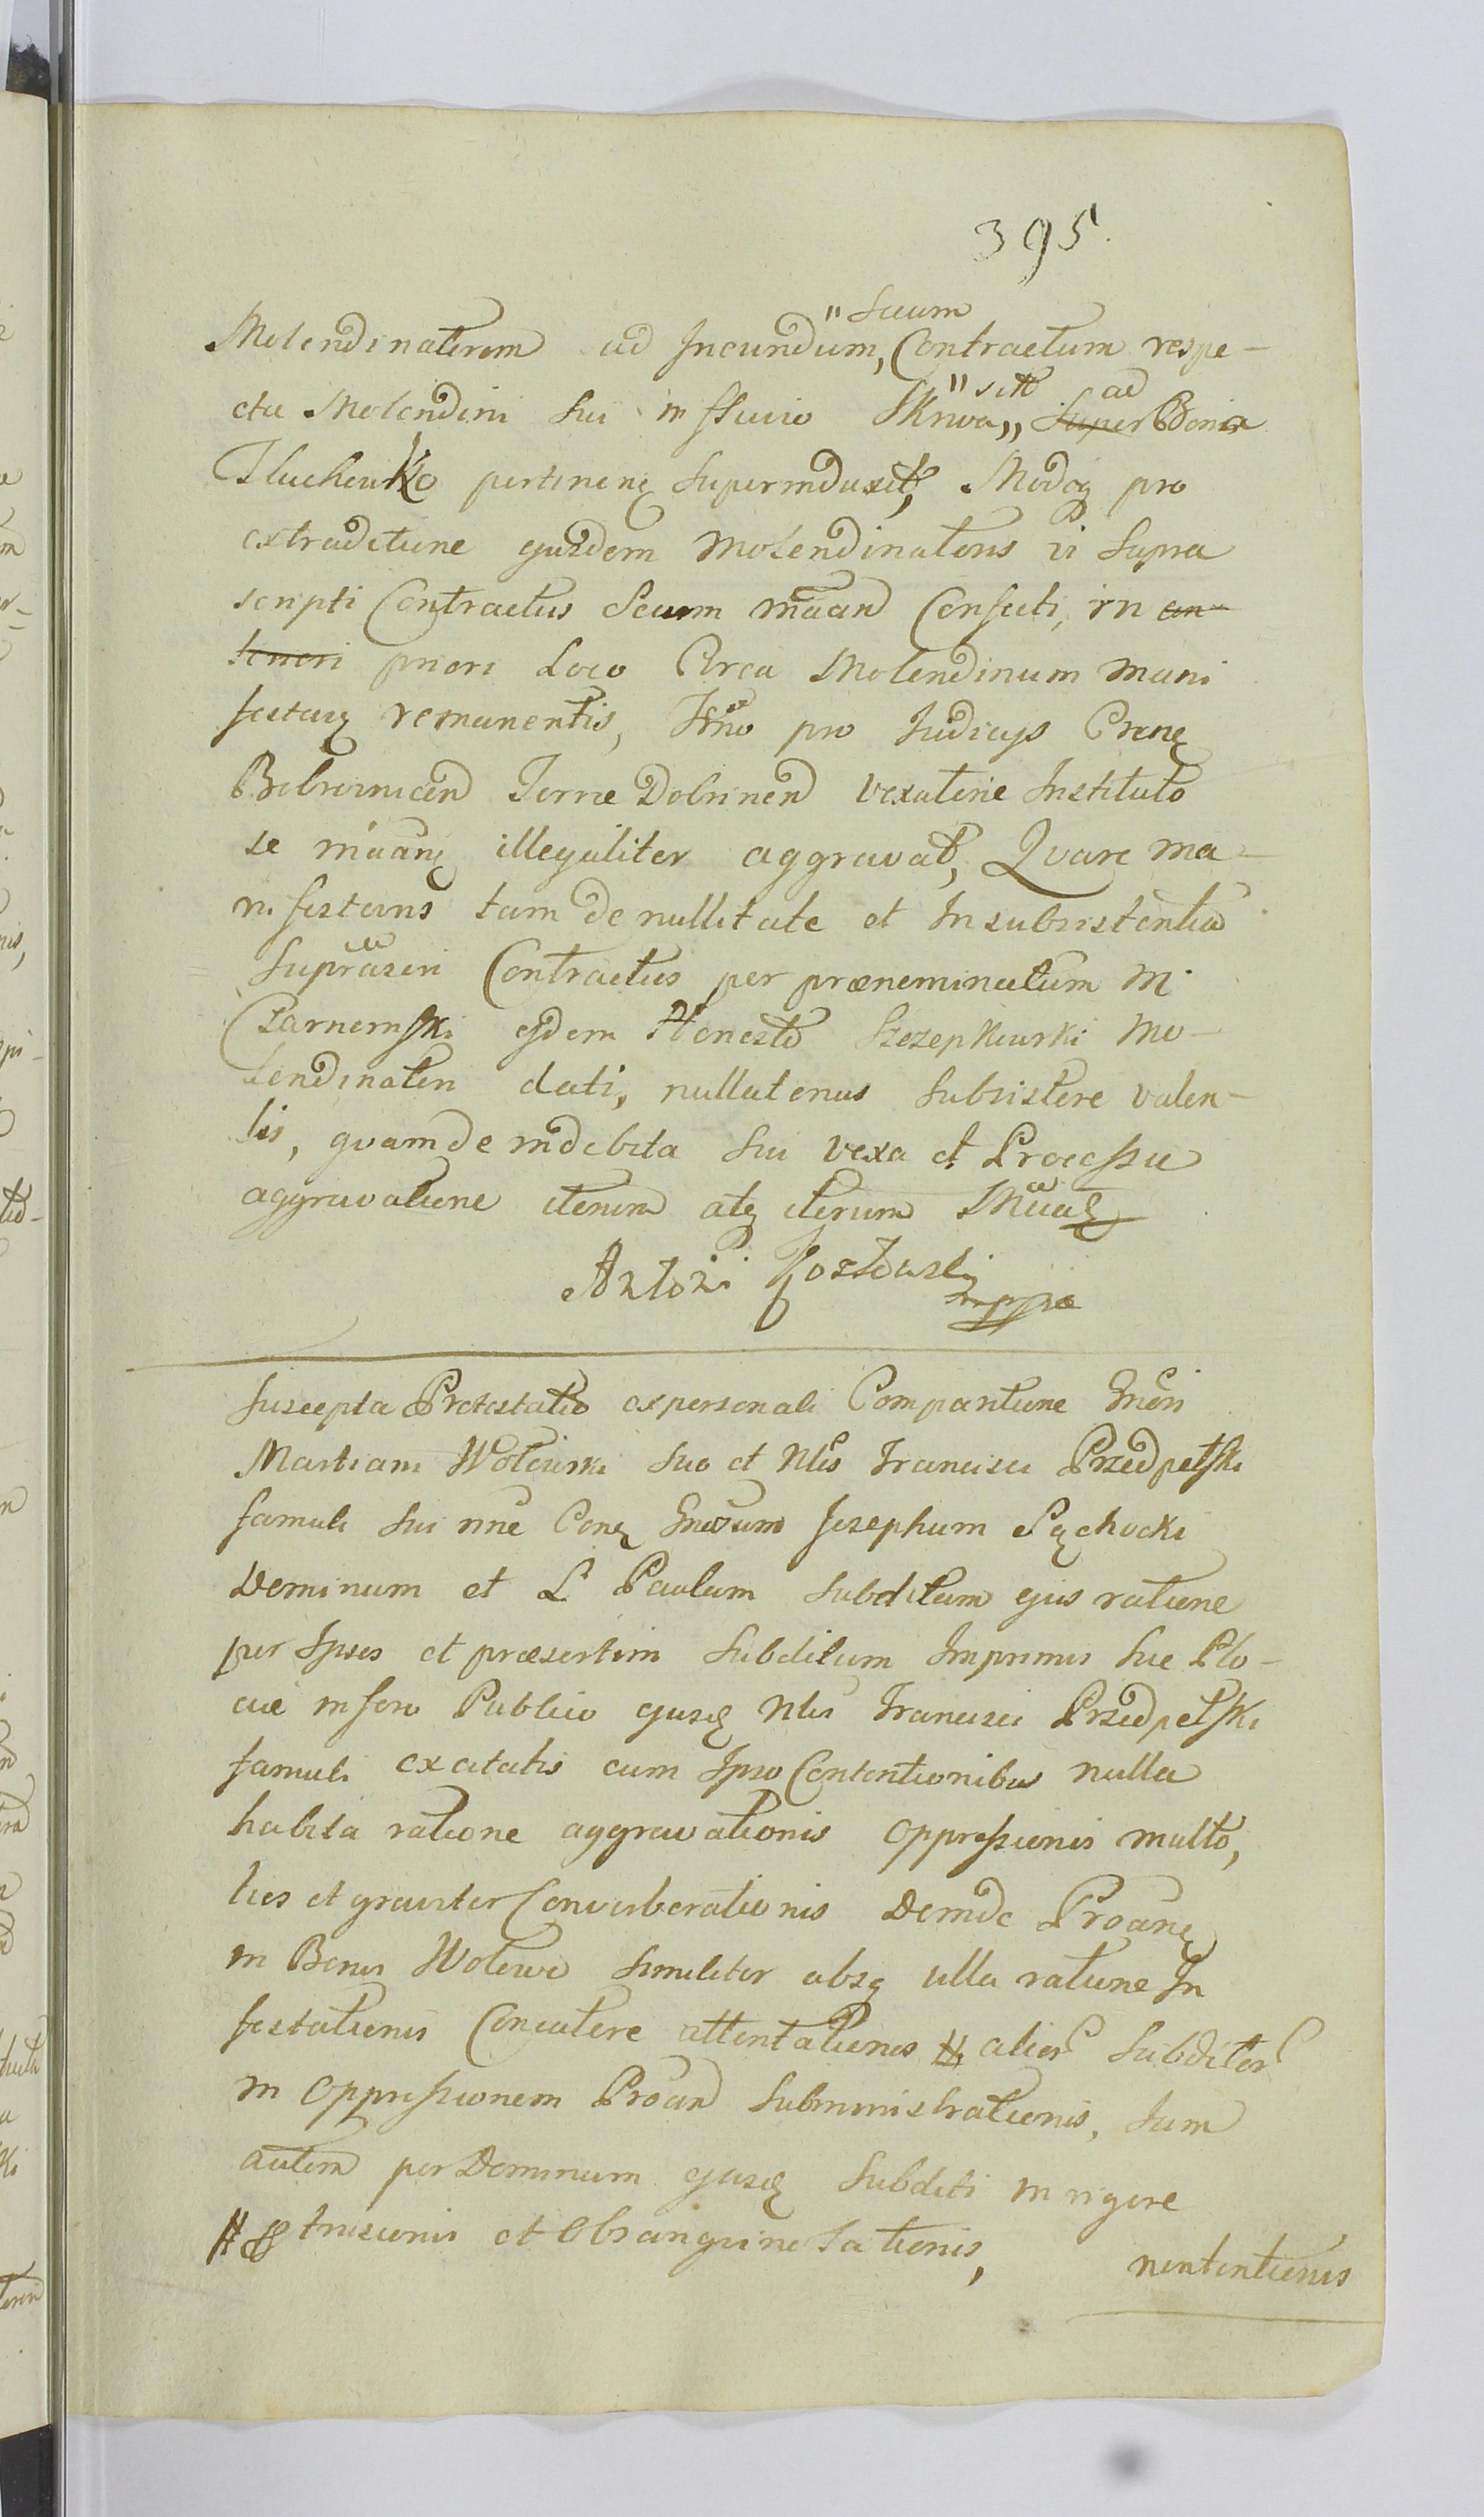 395.
"Secum
Molendinatorem ad Ineundum, Contractum respe-
"sitt ad
ctu Molendini sui in fluvio Skrwa,, Super Bona
Tłuchowko pertinenę superinduxit, Modoq pro
extraditione ejusdem Molendinatoris vi supra
scripti Contractus Secum māan Confecti, in an-
teriori priori Loco Circa Molendinum mani
festanę remanentis, Tērno pro Judicijs Crenę
Bobrovnicen Terræ Dobrinen vexatorie Instituto
se māanę illegaliter aggravat, Qvare ma-
nifestans tam de nullitate et Insubsistentia
suprāscri Contractus per prænominatum M.
Czarnomski ejdem Honesto Szczepkowski Mo-
lendinatori dati, nullatenus subsistere valen-
tis, qvam de indebita sui vexa et Processu
aggravatione iterum atq iterum
Antoni Kozłowski
mppa
Suscepta Protestatio ex personali Comparitione Gnēri
Martiani Wołowski suo et Nlis Francisci Przedpełski
famuli sui nne Conę Gnērosum Josephum Sęchocki
Dominum et L. Paulum Subditum ejus ratione
per Ipsos et præsertim Subditum Imprimis hic Plo-
ciæ in foro Publico ejusd Nlis Francisci Przedpełski
famuli excitatis cum Ipso Contentionibus nulla
habita ratione aggravationis oppressionis multo,
ties et graviter Converberationis Deinde Proānę
in Bonis Wołowo similiter absq ulla ratione In
festationis Concutere attentationis # alior Subditor
in oppressionem Proān Subministrationis, Tum
autem per Dominum ejusd Subditi in rigore
# et et Obsangvinolationis,
nententionis